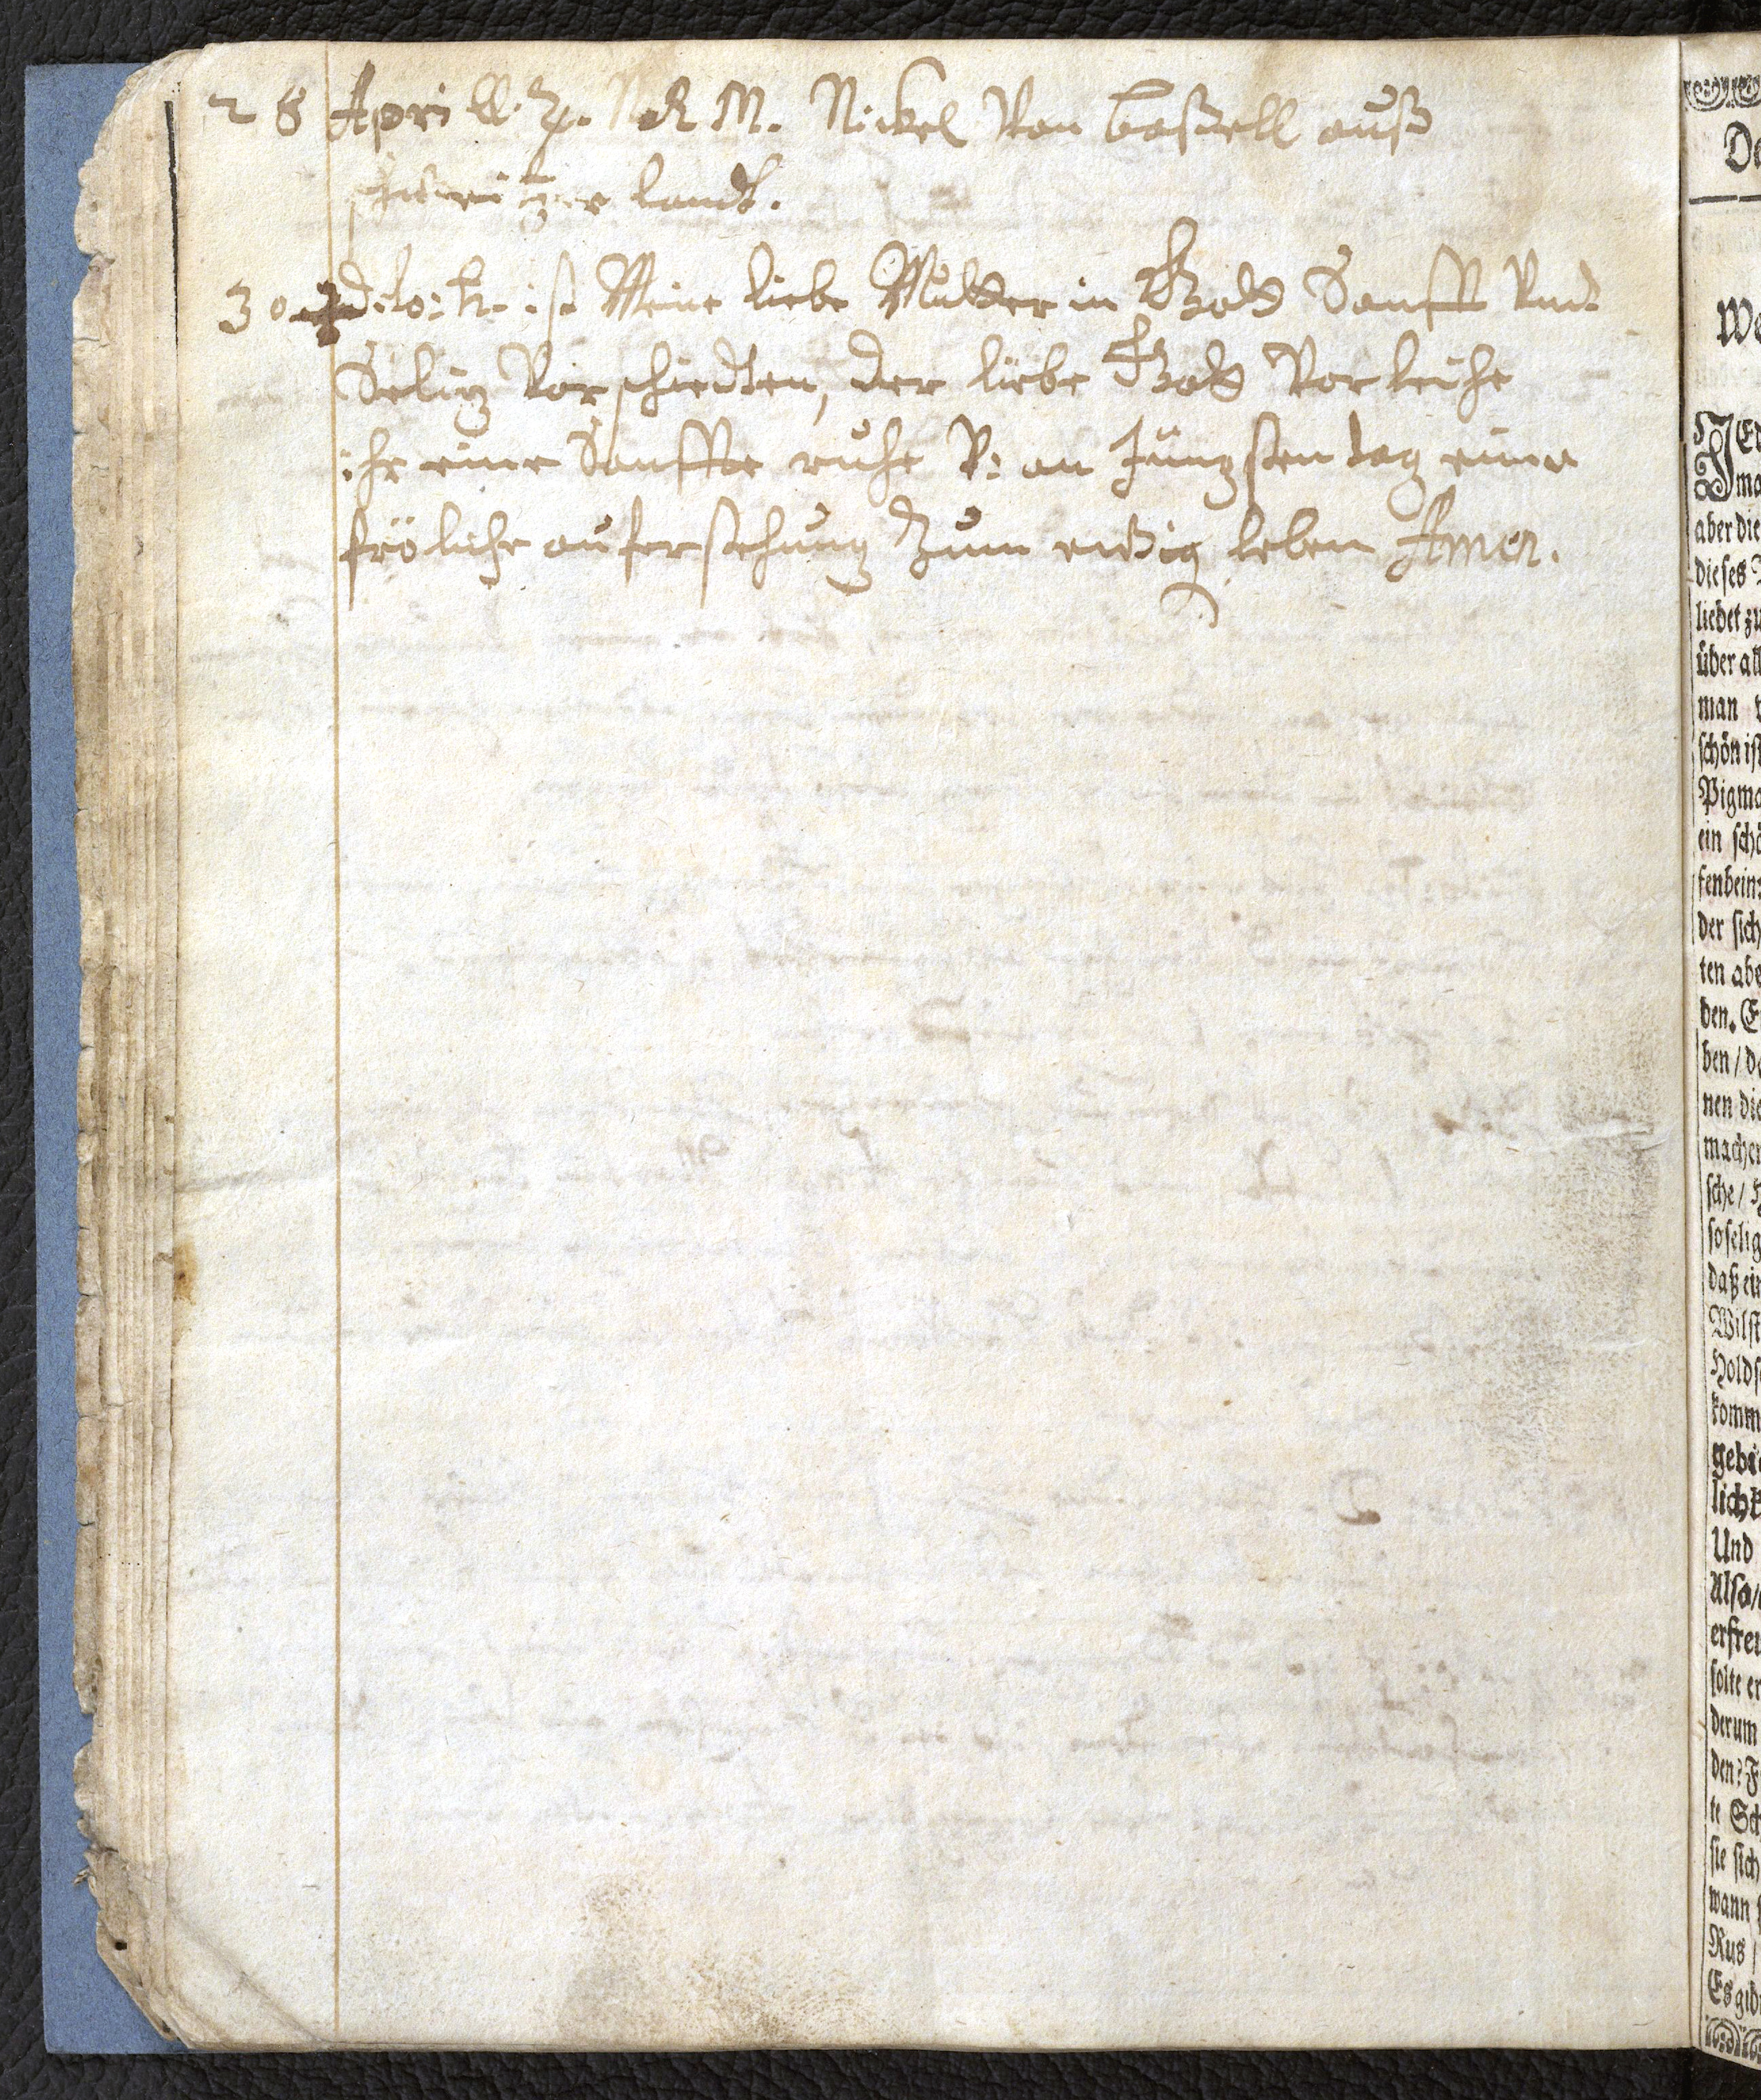 28 Aprill. Z. M. Nickel Von baßell auß
schweitzer landt.
30 dito ist Meine liebe Mutter in Gott Sanfft Vnd
Selig Vorschiedten, der liebe Gott Vorleihe
ihr eine Sanffte ruhe V: an Jüngsten tag eine
fröliche auferstehung Zum ewig leben Amen.
De
We
JEd
ma
aber die
dieses
liebet zu
über all
man
schön ist
Pigma
ein schö
fenbein
der sich
ten abe
den. E
ben / da
nen die
machen
sche /
so selig
daß ein
Wilst
Holds
komm
gebä
lichk
Und
Also /
erfreu
solte er
derum
den? F
te Sch
sie sich
wann
Rus /
Es gib